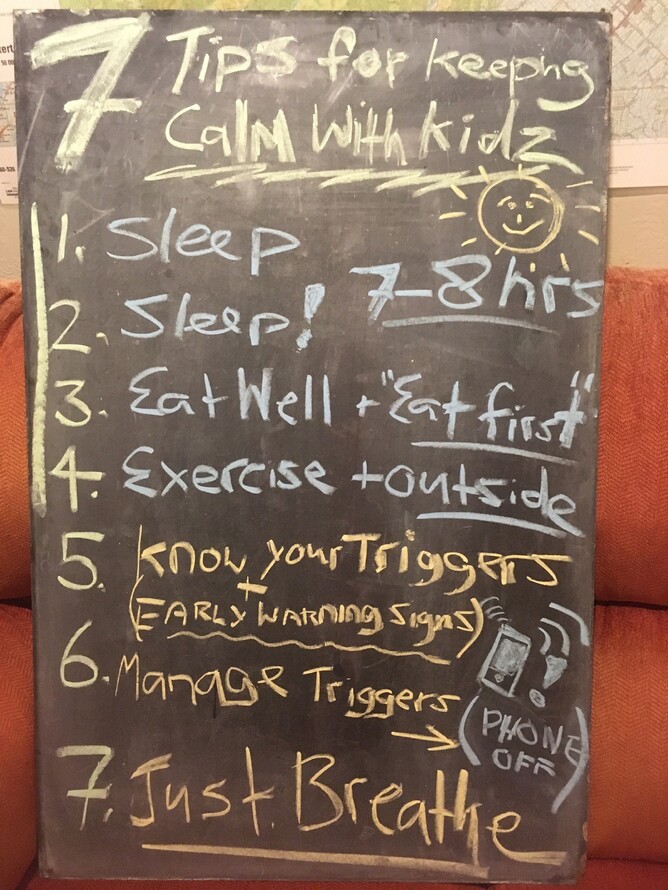 7 Tips for Keeping
Calm With Kidz
1. Sleep
7-8 hrs
2. Sleep!
3. Eat Well + "Eat first"
4. Exercise + outside
5. Know your Triggers
+
(EARLY WARNING Signs)
6. Manage Triggers
→ (PHONE
OFF)
7. Just Breathe